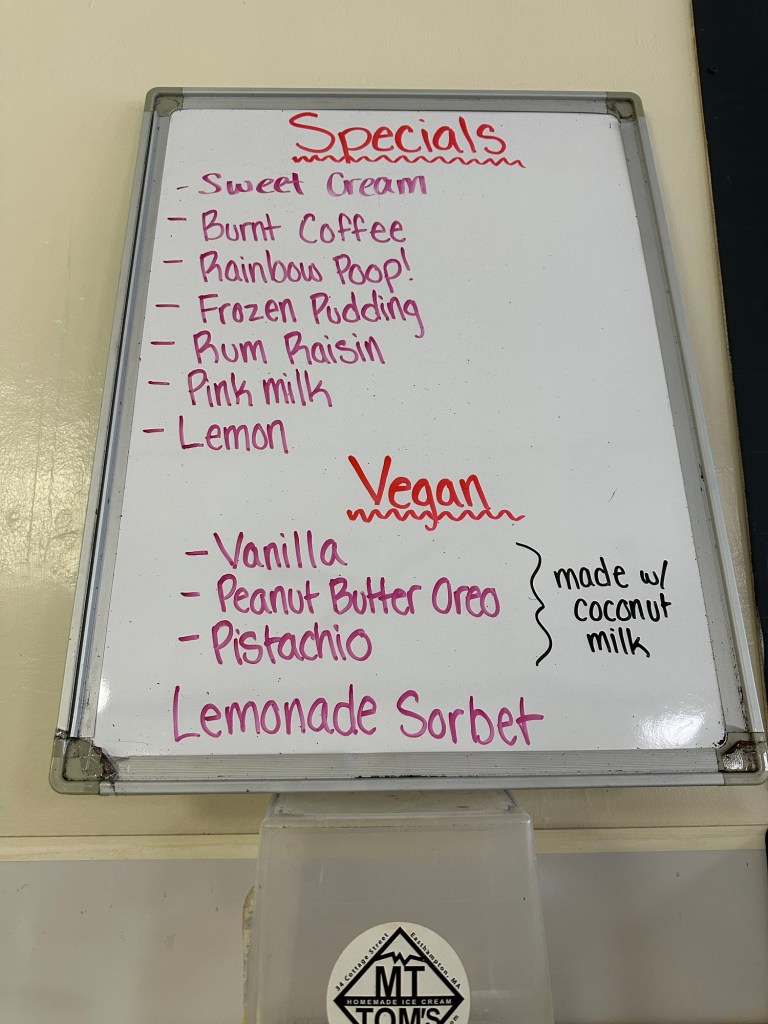 Specials
- Sweet Cream
- Burnt Coffee
- Rainbow Poop!
- Frozen Pudding
- Rum Raisin
- Pink milk
- Lemon
Vegan
- Vanilla
- Peanut Butter Oreo
- Pistachio
made w/
coconut
milk
Lemonade Sorbet
34 Cottage Street
Easthampton, MA
MT
HOMEMADE ICE CREAM
TOM'S